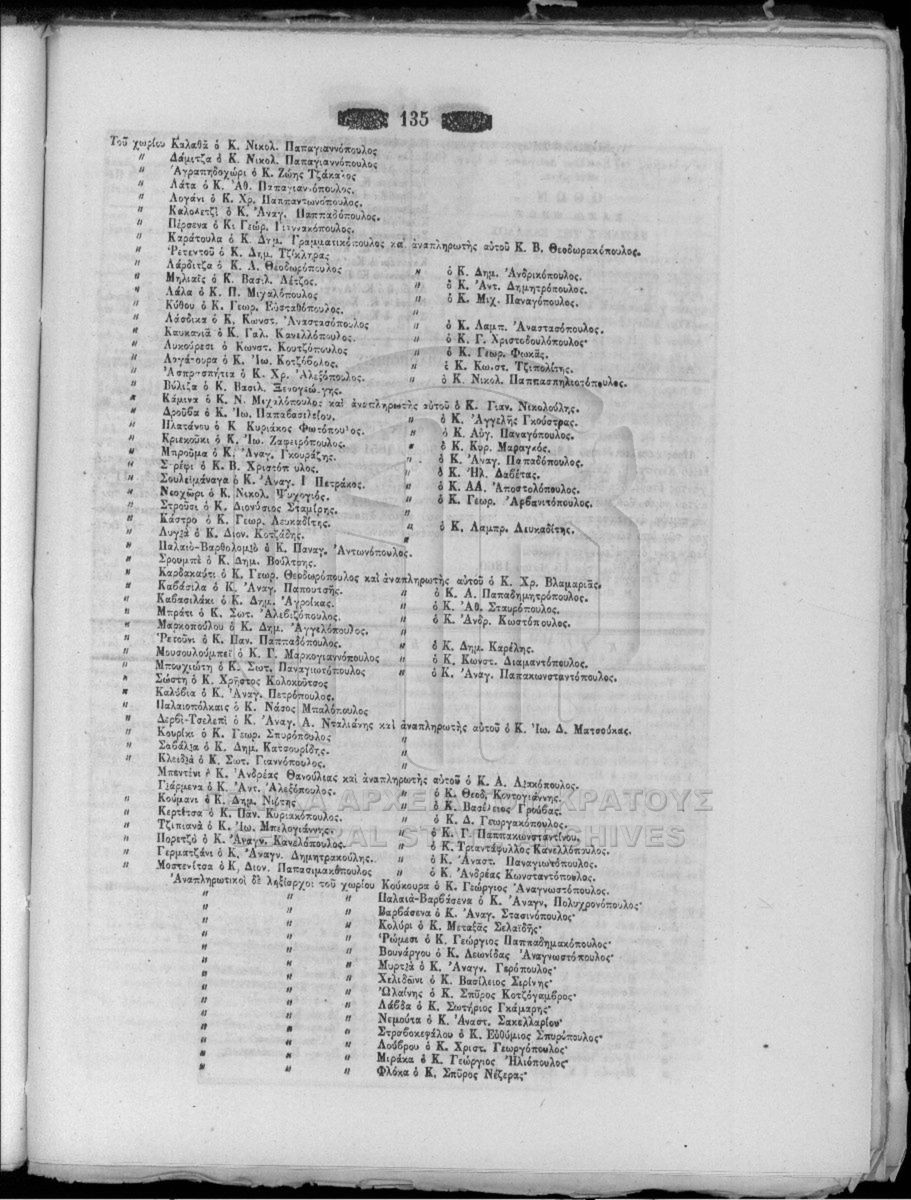 135
Τοῦ χωρίου Καλαθᾶ ὁ Κ. Νικολ. Παπαγιαννόπουλος
" Δάμιτζα ὁ Κ. Νικολ. Παπαγιαννόπουλος
" Ἀγραπηδοχῶρι ὁ Κ. Ζώης Τζάκαλος
" Λάτα ὁ Κ. Ἀθ. Παπαγιαννόπουλος.
" Λογάνι ὁ Κ. Χρ. Παππαντωνόπουλος.
" Καλολετζῆ ὁ Κ. Ἀναγ. Παππαδόπουλος.
" Πέρσενα ὁ Κ. Γεώρ. Γιαννακόπουλος.
" Καράτουλα ὁ Κ. Δημ. Γραμματικόπουλος καὶ ἀναπληρωτὴς αὐτοῦ Κ. Β. Θεοδωρακόπουλος.
" Ῥετεντοῦ ὁ Κ. Δημ. Τζίκληρας
" Λάρδιτζα ὁ Κ. Α. Θεοδωρόπουλος " ὁ Κ. Δημ. Ἀνδρικόπουλος.
" Μηλιαῖς ὁ Κ. Βασιλ. Λέτζος. " ὁ Κ. Ἀντ. Δημητρόπουλος.
" Λάλα ὁ Κ. Π. Μιχαλόπουλος " ὁ Κ. Μιχ. Παναγόπουλος.
" Κύθου ὁ Κ. Γεωρ. Εὐσταθόπουλος. "
" Λάσδικα ὁ Κ. Κωνστ. Ἀναστασόπουλος " ὁ Κ. Λαμπ. Ἀναστασόπουλος.
" Καυκανιᾶ ὁ Κ. Γαλ. Κανελλόπουλος. " ὁ Κ. Γ. Χριστοδουλόπουλος·
" Λυκούρεσι ὁ Κωνστ. Κουτζόπουλος " ὁ Κ. Γεωρ. Φωκᾶς.
" ὁ Κ. Ἰω. Κοτζόβολος. " ὁ Κ. Κωνστ. Τζιπολίτης.
" Ἀσπρασπήτια ὁ Κ. Χρ. Ἀλεξόπουλος. " ὁ Κ. Νικολ. Παππασπηλιοτόπουλος.
" Βύλιζα ὁ Κ. Βασιλ.
" Κάμινα ὁ Κ. Ν. Μιχαλόπουλος καὶ ἀναπληρωτὴς αὐτοῦ ὁ Κ. Γιαν. Νικολούλης.
" Δροῦβα ὁ Κ. Ἰω. Παπαβασιλείου. " ὁ Κ. Ἀγγελῆς Γκούστρας.
" Πλατάνου ὁ Κ Κυριάκος Φωτόπουλος. " ὁ Κ. Αὐγ. Παναγόπουλος.
" Κριεκοῦκι ὁ Κ. Ἰω. Ζαφειρόπουλος. " ὁ Κ. Κυρ. Μαραγκός.
" Μπροῦμα ὁ Κ. Ἀναγ. Γκουράζης. " ὁ Κ. Ἀναγ. Παπαδόπουλος.
" Στρέφι ὁ Κ. Β. Χριστόπουλος. " ὁ Κ. Ἠλ. Δαβέτας.
" Σουλεϊμάναγα ὁ Κ. Ἀναγ. Πετράκος. " ὁ Κ. ΑΛ. Ἀποστολόπουλος.
" Νεοχῶρι ὁ Κ. Νικολ. Ψυχογιός. " ὁ Κ. Γεωρ. Ἀρβανιτόπουλος.
" Στροῦσι ὁ Κ. Διονύσιος Σταμίρης.
" Κάστρο ὁ Κ. Γεωρ. Λευκαδίτης. " ὁ Κ. Λαμπρ. Λευκαδίτης.
" Λυγιὰ ὁ Κ. Διον. Κοτζάδης. "
" Παλαιὸ-Βαρθολομιὸ ὁ Κ. Παναγ. Ἀντωνόπουλος.
" Σρουμπὲ ὁ Κ. Δημ. Βούλτσης.
" Καρδακαύτι ὁ Κ. Γεωρ. Θεοδωρόπουλος καὶ ἀναπληρωτὴς αὐτοῦ ὁ Κ. Χρ. Βλαμαριᾶς.
" Καβάσιλα ὁ Κ. Ἀναγ. Παπουτσῆς. " ὁ Κ. Α. Παπαδημητρόπουλος.
" Καβασιλάκι ὁ Κ. Δημ. Ἀγροίκας. " ὁ Κ. Ἀθ. Σταυρόπουλος.
" Μπράτι ὁ Κ. Σωτ. Ἀλεβιζόπουλος. " ὁ Κ. Ἀνδρ. Κωστόπουλος.
" Μαρκοπούλου ὁ Κ. Δημ. Ἀγγελόπουλος. "
" Ῥετοῦνι ὁ Κ. Παν. Παππαδόπουλος. " ὁ Κ. Δημ. Καρέλης.
" Μουσουλούμπεϊ ὁ Κ. Γ. Μαρκογιαννόπουλος " ὁ Κ. Κωνστ. Διαμαντόπουλος.
" Μπουχιώτη ὁ Κ. Σωτ. Παναγιωτόπουλος " ὁ Κ. Ἀναγ. Παπακωνσταντόπουλος.
" Σώστη ὁ Κ. Χρῆστος Κολοκοῦτσος
" Καλύβια ὁ Κ. Ἀναγ. Πετρόπουλος.
" Παλαιοπόλκαις ὁ Κ. Νάσος Μπαλόπουλος
" Δερβὶ-Τσελεπὶ ὁ Κ. Ἀναγ. Α. Νταλιάνης καὶ ἀναπληρωτὴς αὐτοῦ ὁ Κ. Ἰω. Δ. Ματσούκας.
" Κουρίκι ὁ Κ. Γεωρ. Σπυρόπουλος "
" Σαβάλια ὁ Κ. Δημ. Κατσουρίδης. "
" Κλειδιὰ ὁ Κ. Σωτ. Γιαννόπουλος.
Μπεντένι ὁ Κ. Ἀνδρέας Θανούλιας καὶ ἀναπληρωτὴς αὐτοῦ ὁ Κ. Α. Λιακόπουλος.
" Γιάρμενα ὁ Κ. Ἀντ. Ἀλεξόπουλος. " ὁ Κ. Θεοδ. Κοντογιάννης.
" Κούμανι ὁ Κ. Δημ. " ὁ Κ. Βασίλειος Γρούβας.
" Κερτέτσα ὁ Κ. Παν. Κυριακόπουλος. " ὁ Κ. Δ. Γεωργακόπουλος.
" Τζιπιανὰ ὁ Κ. Ἰω. Μπελογιάννης. " ὁ Κ. Γ. Παππακωνσταντίνου.
" Πορετζὸ ὁ Κ. Ἀναγν. Κανελόπουλος. " ὁ Κ. Τριαντάφυλλος Κανελλόπουλος.
" Γερματζάνι ὁ Κ. Ἀναγν. Δημητρακούλης. " ὁ Κ. Ἀναστ. Παναγιωτόπουλος.
" Μοστενίτσα ὁ Κ. Διον. Παπασιμακόπουλος " ὁ Κ. Ἀνδρέας Κωνσταντόπουλος.
Ἀναπληρωτικοὶ δὲ ληξίαρχοι τοῦ χωρίου Κούκουρα ὁ Κ. Γεώργιος Ἀναγνωστόπουλος.
" " " Παλαιὰ-Βαρβάσενα ὁ Κ. Ἀναγν. Πολυχρονόπουλος·
" " " Βαρβάσενα ὁ Κ. Ἀναγ. Στασινόπουλος·
" " " Κολύρι ὁ Κ. Μεταξᾶς Σελαϊδῆς·
" " " Ῥώμεσι ὁ Κ. Γεώργιος Παππαδημακόπουλος·
" " " Βουνάργου ὁ Κ. Λεωνίδας Ἀναγνωστόπουλος·
" " " Μυρτιὰ ὁ Κ. Ἀναγν. Γερόπουλος·
" " " Χελιδῶνι ὁ Κ. Βασίλειος Σερίνης·
" " " Ὠλαίνης ὁ Κ. Σπῦρος Κοτζόγαμβρος·
" " " Λάβδα ὁ Κ. Σωτήριος Γκάμαρης·
" " " Νεμούτα ὁ Κ. Ἀναστ. Σακελλαρίου·
" " " Στραβοκεφάλου ὁ Κ. Εὐθύμιος Σπυρόπουλος·
" " " Λούβρου ὁ Κ. Χριστ. Γεωργόπουλος·
" " " Μιράκα ὁ Κ. Γεώργιος Ἡλιόπουλος·
" " " Φλόκα ὁ Κ. Σπῦρος Νέζερας·